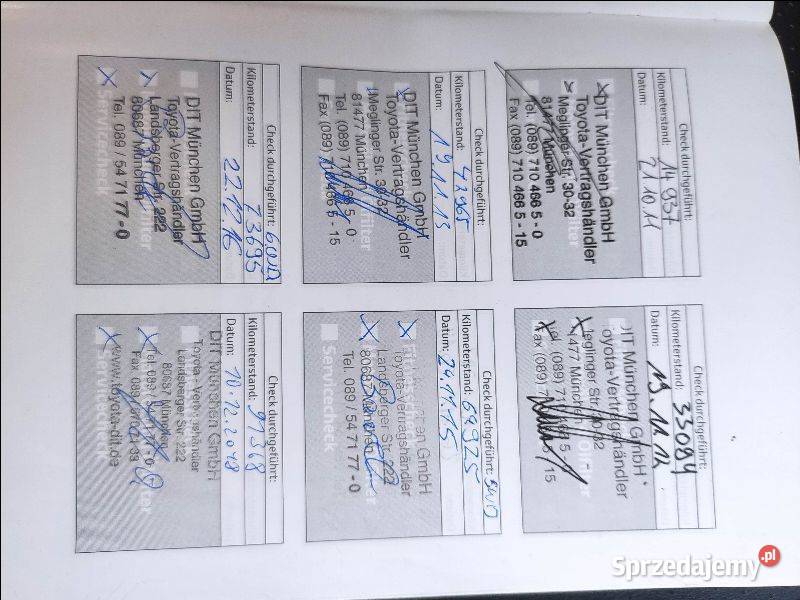 Check durchgeführt:
Kilometerstand: 14937
Datum: 21.10.11
DIT München GmbH
Toyota-Vertragshändler
Meglinger Str. 30-32
81477 München
Tel. (089) 710 468 5 - 0
Fax (089) 710 468 5 - 15
Check durchgeführt:
Kilometerstand: 33084
Datum: 19.11.12
DIT München GmbH
Toyota-Vertragshändler
Meglinger Str. 30-32
81477 München
Tel. (089)
Fax (089)
15
Check durchgeführt:
Kilometerstand: 47965
Datum: 19.11.13
DIT München GmbH
Toyota-Vertragshändler
Meglinger Str. 30-32
81477 München
Tel. (089) 710 468 5 - 0
Fax (089) 710 468 5 - 15
Check durchgeführt:
Kilometerstand: 69925
Datum: 24.11.15
München GmbH
Toyota-Vertragshändler
Landsberger Str. 222
80687 München
Tel. 089 / 54 71 77 - 0
Servicecheck
Check durchgeführt:
Kilometerstand: 73695
Datum: 22.12.16
DIT München GmbH
Toyota-Vertragshändler
Landsberger Str. 222
80687 München
Tel. 089 / 54 71 77 - 0
Servicecheck
Check durchgeführt:
Kilometerstand: 91368
Datum: 10.12.2018
DIT München GmbH
Toyota-Vertragshändler
Landsberger Str. 222
80687 München
Tel. 089
Fax 089
www.toyota-dit.de
Servicecheck
Sprzedajemy.pl